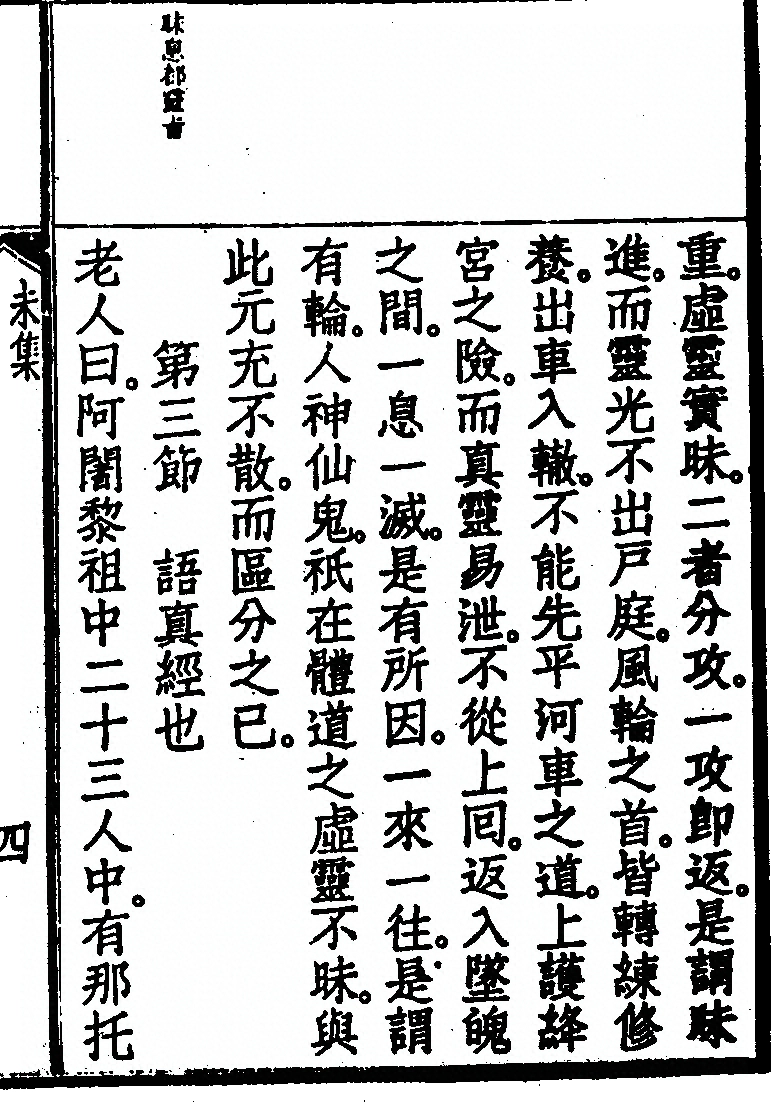 昧息都靈言
重。虛靈實昧。二者分攻。一攻卽返。是謂昧
進。而靈光不出戸庭。風輪之首。皆轉練修
養。出車入轍。不能先平河車之道。上護絳
宮之險。而真靈易泄。不從上囘。返入墜魄
之間。一息一滅。是有所因。一來一往。是謂
有輪。人神仙鬼。祇在體道之虛靈不昧。與
此元充不散。而區分之已。
第三節　語真經也
老人曰。阿闍黎祖中二十三人中。有那托
未集
四